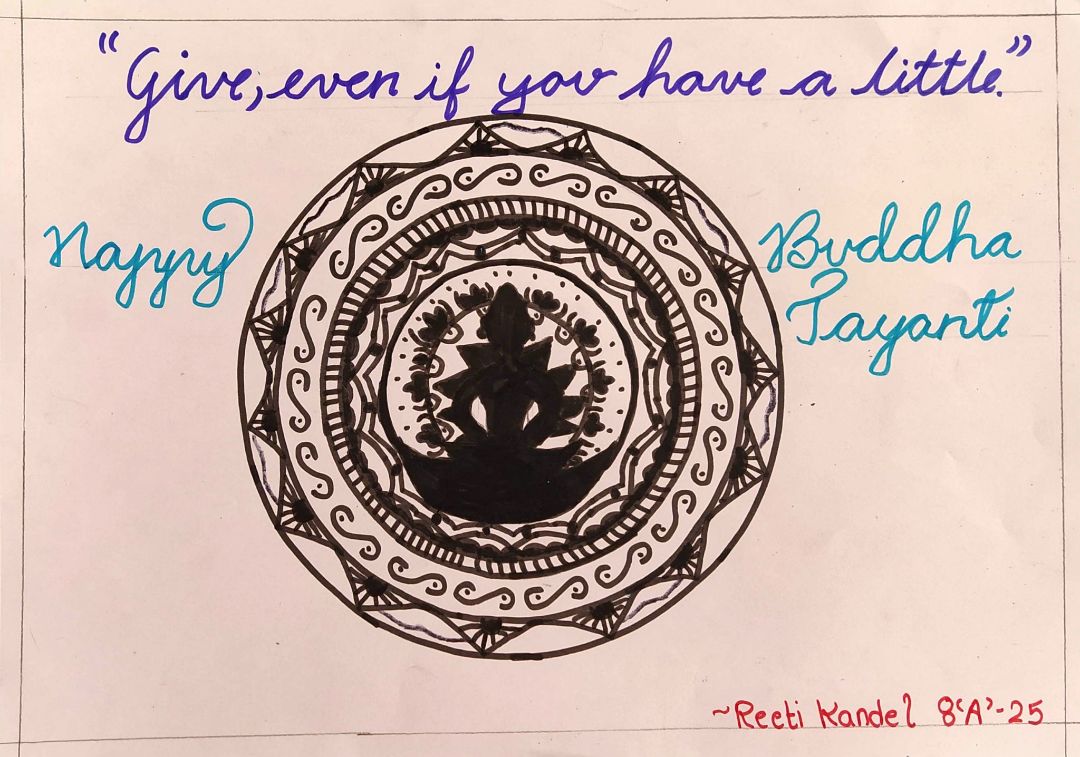 "Give, even if you have a little."
Happy
Buddha
Jayanti
~Reeti Kandel 8'A'-25